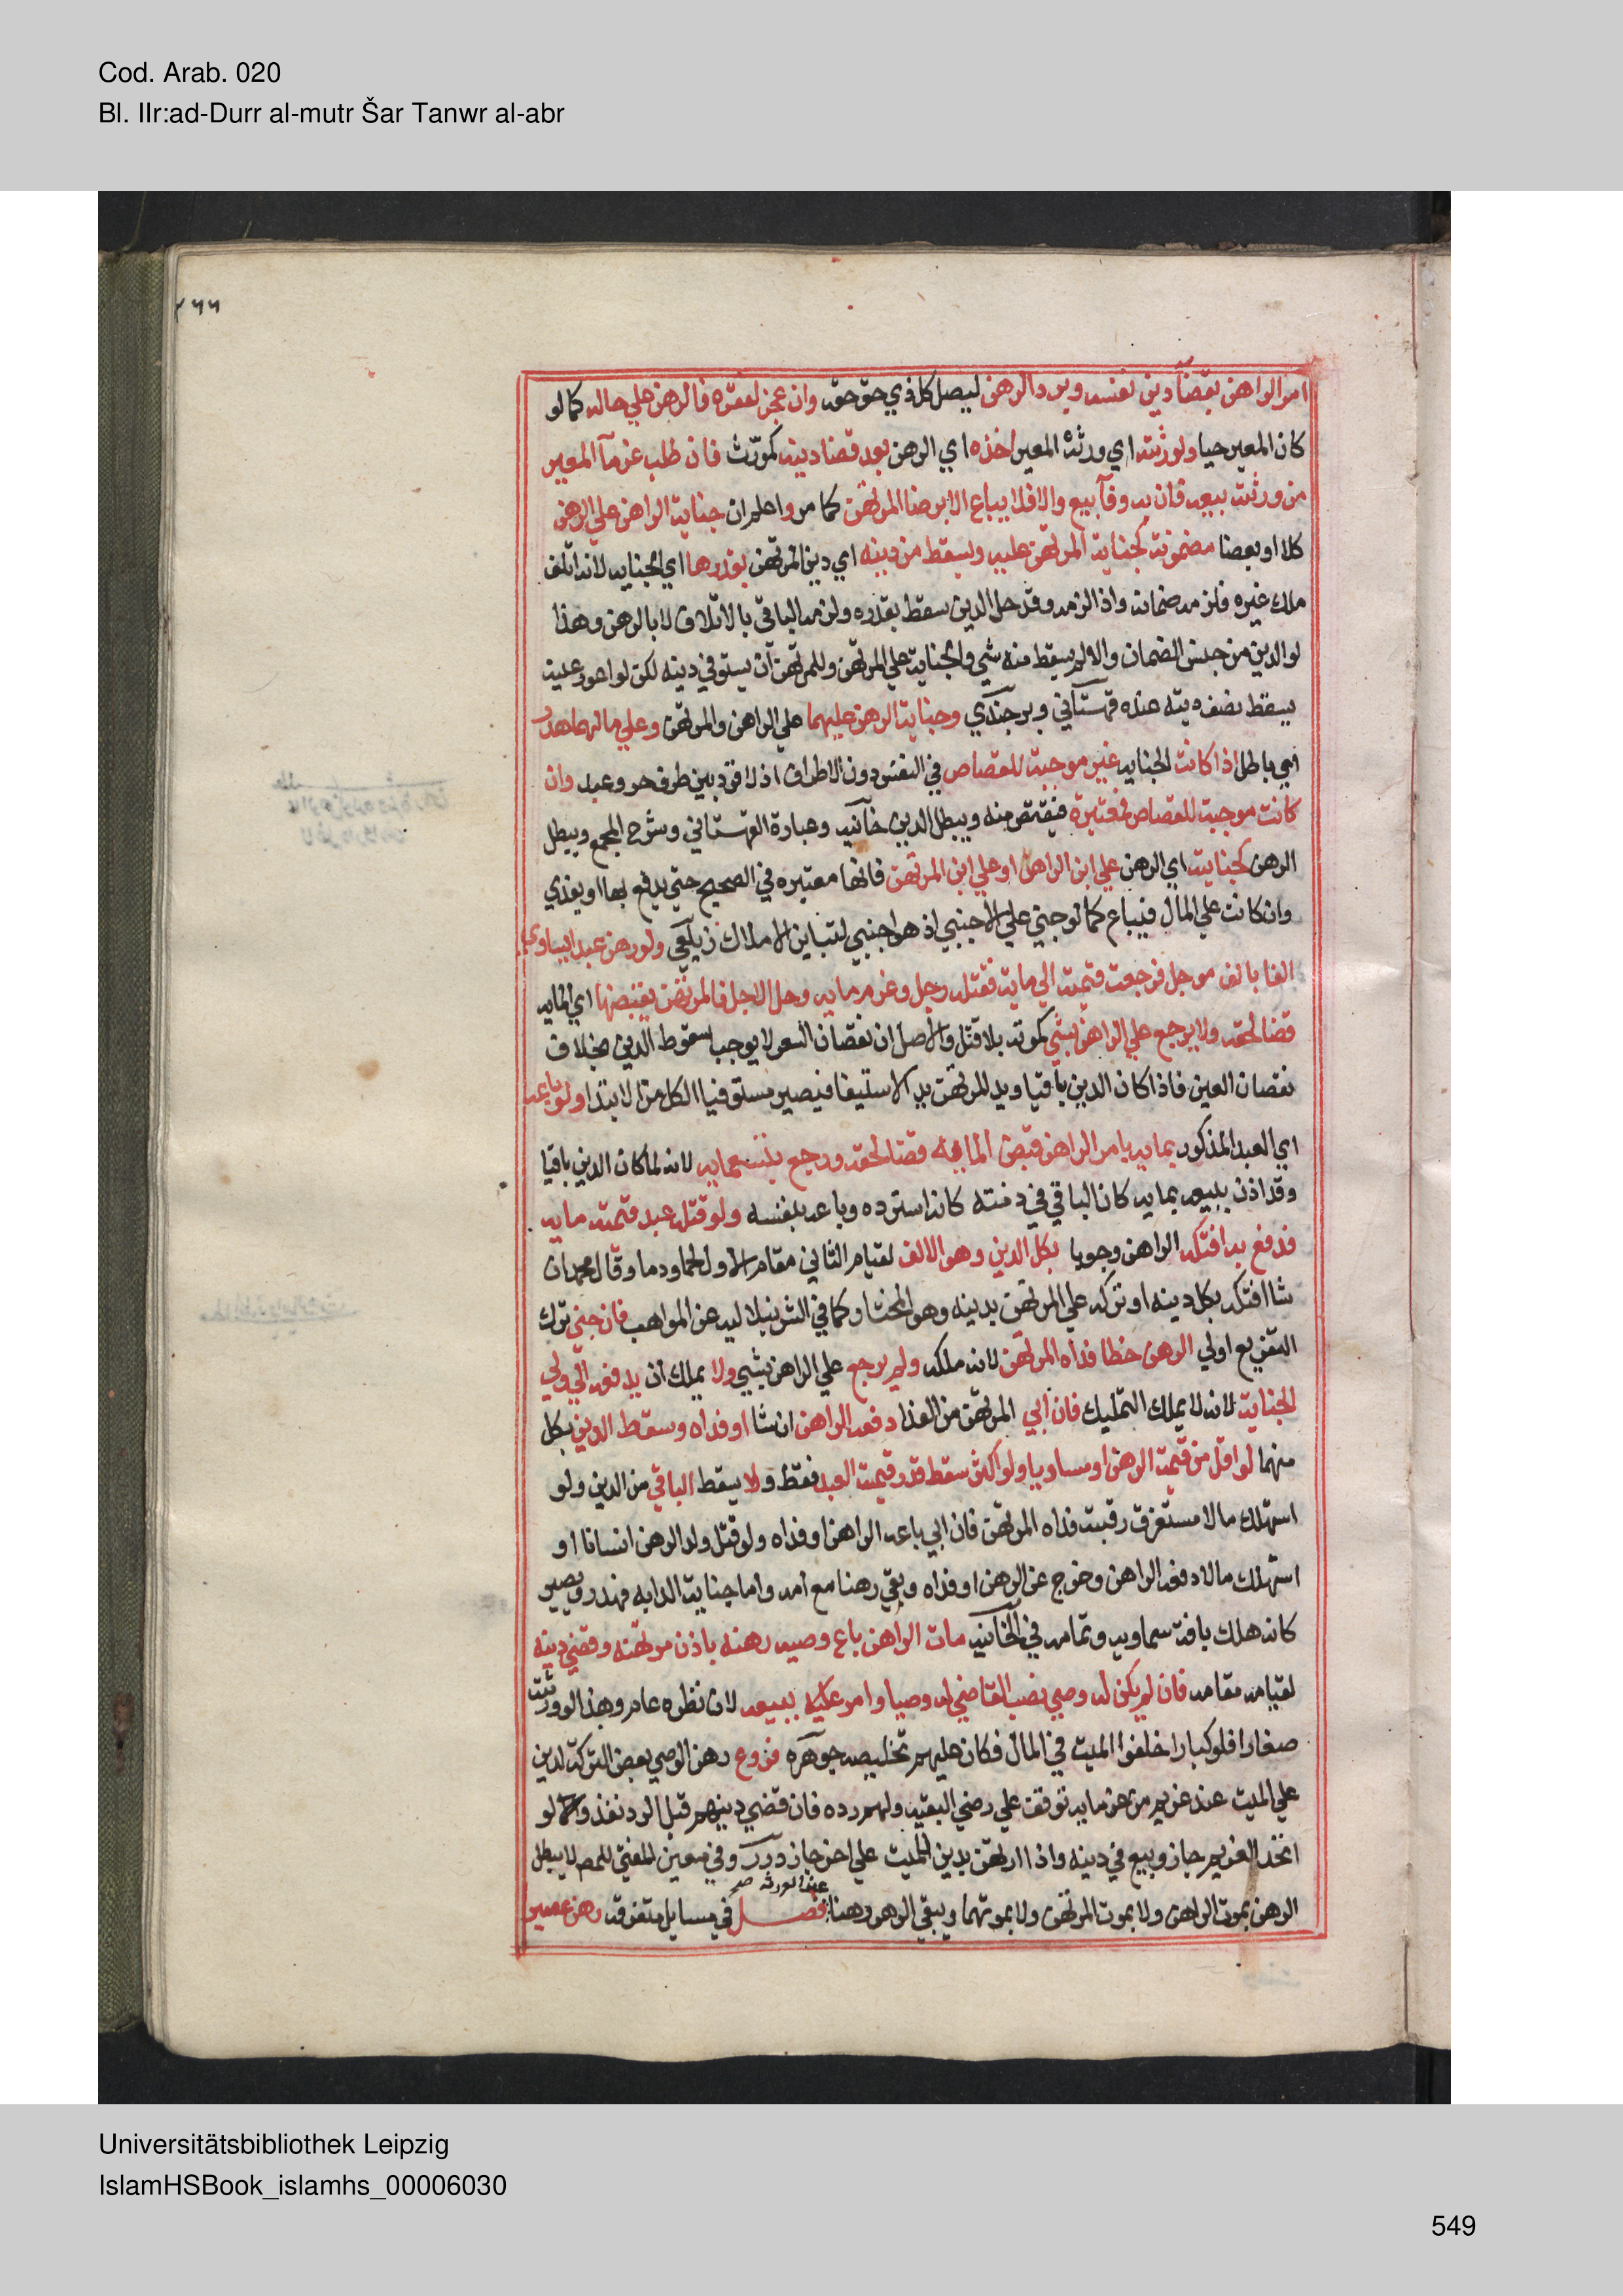 Cod. Arab. 020
Bl. IIr:ad-Durr al-mutr Šar Tanwr al-abr
٢٦٦
امر الراهن بقضآ دين نفسه ويرد الرهن ليصل كل ذي حق حقه وان عجز لفقره فالرهن علي حاله كما لو
كان المعير حيا ولورثته اي ورثة المعير اخذه اي الرهن بعد قضا دينه كمورث فان طلب غرمآ المعير
من ورثته بيعه فان به وفآ بيع والا فلا يباع الا برضا المرتهن كما مر واعلم ان جناية الراهن علي الرهن
كلا او بعضا مضمونة كجناية المرتهن عليه ويسقط من دينه اي دين المرتهن بقدرها اي الجنايه لانه اتلف
ملك غيره فلزمه ضمانه واذا لزمه وقد حل الدين سقط بقدره ولزمه الباقي بالاتلاف لا بالرهن وهذا
لو الدين من جنس الضمان والا لم يسقط منه شي والجناية علي المرتهن وللمرتهن ان يستوفي دينه لكن لو اعور عينه
يسقط نصف دينه عنده قهستاني وبرجندي وجناية الرهن عليهما علي الراهن والمرتهن وعلي مالهما هدر
اي باطل اذا كانت الجنايه غير موجبة للقصاص في النفس دون الاطراف اذ لا قود بين طرف حر وعبد وان
كانت موجبة للقصاص فمعتبرة فيقتص منه ويبطل الدين خانيه وعبارة القهستاني وشرح المجمع ويبطل
الرهن كجناية اي الرهن علي ابن الراهن او علي ابن المرتهن فانها معتبره في الصحيح حتي يدفع بها او يفدي
وان كانت علي المال فيباع كما لو جني علي الاجنبي اذ هو اجنبي لتباين الاملاك زيلعي ولو رهن عبدا يساوي
الفا بالف موجل فرجعت قيمته الي ماية فقتله رجل وغرم مايه وحل الاجل فالمرتهن يقبضها اي المايه
قضا لحقه ولا يرجع علي الراهن بشي كموته بلا قتل والاصل ان نقصان السعر لا يوجب سقوط الدين بخلاف
نقصان العين فاذا كان الدين باقيا ويد المرتهن يد الاستيفا فيصير مستوفيا الكل من الابتدا ولو باعه
اي العبد المذكور بمايه بامر الراهن قبض المايه قضا لحقه ورجع بتسعمايه لانه لما كان الدين باقيا
وقد اذن ببيعه بمايه كان الباقي في ذمته كانه استرده وباعه بنفسه ولو قتله عبد قيمته مايه
فدفع به افتكه الراهن وجوبا بكل الدين وهو الالف لقيام الثاني مقام الاول لحما ودما وقال محمد ان
شا افتكه بكل دينه او تركه علي المرتهن بدينه وهو المختار كما في الشرنبلاليه عن المواهب فان جني ترك
التفريع اولي الرهن خطا فداه المرتهن لانه ملكه ولم يرجع علي الراهن بشي ولا يملك ان يدفعه الي ولي
الجناية لانه لا يملك التمليك فان ابي المرتهن من الفدا دفعه الراهن ان شا او فداه وسقط الدين بكل
منهما لو اقل من قيمة الرهن او مساويا ولو اكثر سقط قدر قيمة العبد فقط ولا يسقط الباقي من الدين ولو
استهلك مالا مستغرق رقبته فداه المرتهن فان ابي باعه الراهن او فداه ولو قتل ولد الرهن انسانا او
استهلك مالا دفعه الراهن وخرج عن الرهن او فداه وبقي رهنا مع امه واما جناية الدابه فهدر ويصير
كانه هلك بافة سماويه وتمامه في الخانيه مات الراهن باع وصيه رهنه باذن مرتهنه وقضي دينه
لقيامه مقامه فان لم يكن له وصي نصب القاضي له وصيا وامر عليه ببيعه لان نظره عام وهذا لو ورثته
صغارا فلو كبارا خلفوا الميت في المال فكان عليهم تخليصه جوهره فروع رهن الوصي بعض التركة لدين
علي الميت عند غريم من غرمايه توقف علي رضي البقيه ولهم رده فان قضي دينهم قبل الرد نفذ ولو
اتحد الغريم جاز وبيع في دينه واذا ارتهن بدين للميت علي اخر جاز درر وفي معين المفتي للمص لا يبطل
الرهن بموت الراهن ولا بموت المرتهن ولا بموتهما ويبقي الرهن رهنا عند الورثه صح فصل في مسايل متفرقه رهن عصيرا
Universitätsbibliothek Leipzig
IslamHSBook_islamhs_00006030
549